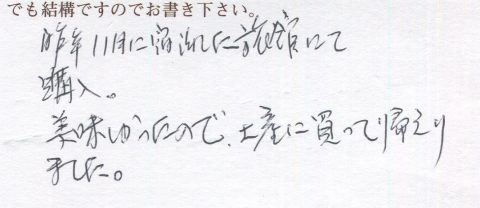 でも結構ですのでお書き下さい。
昨年11月に宿泊した旅館にて
購入。
美味しかったので、土産に買って帰えり
ました。